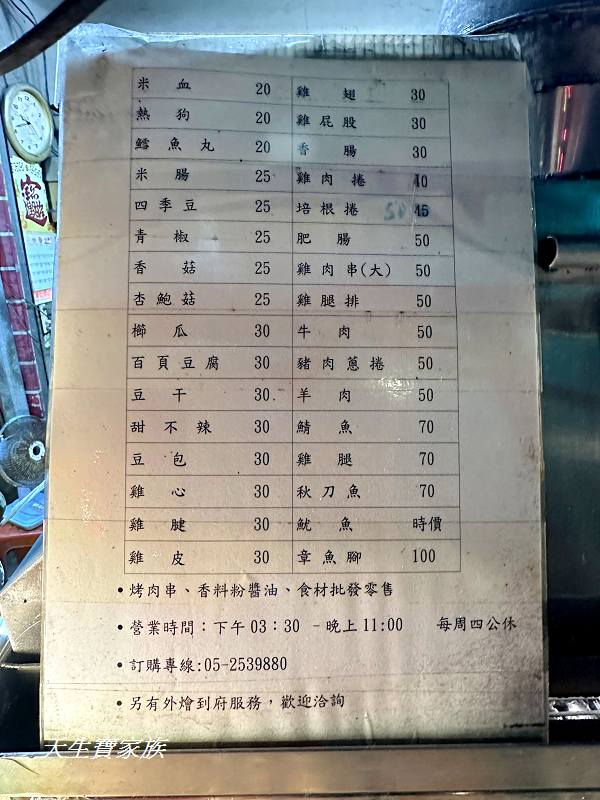 米血 20 雞翅 30
熱狗 20 雞屁股 30
鱈魚丸 20 香腸 30
米腸 25 雞肉捲 40
四季豆 25 培根捲 50 45
青椒 25 肥腸 50
香菇 25 雞肉串(大) 50
杏鮑菇 25 雞腿排 50
櫛瓜 30 牛肉 50
百頁豆腐 30 豬肉蔥捲 50
豆干 30 羊肉 50
甜不辣 30 鯖魚 70
豆包 30 雞腿 70
雞心 30 秋刀魚 70
雞腱 30 魷魚 時價
雞皮 30 章魚腳 100
•烤肉串、香料粉醬油、食材批發零售
•營業時間：下午03：30 –晚上11:00 每周四公休
•訂購專線:05-2539880
•另有外燴到府服務，歡迎洽詢
大生寶家族